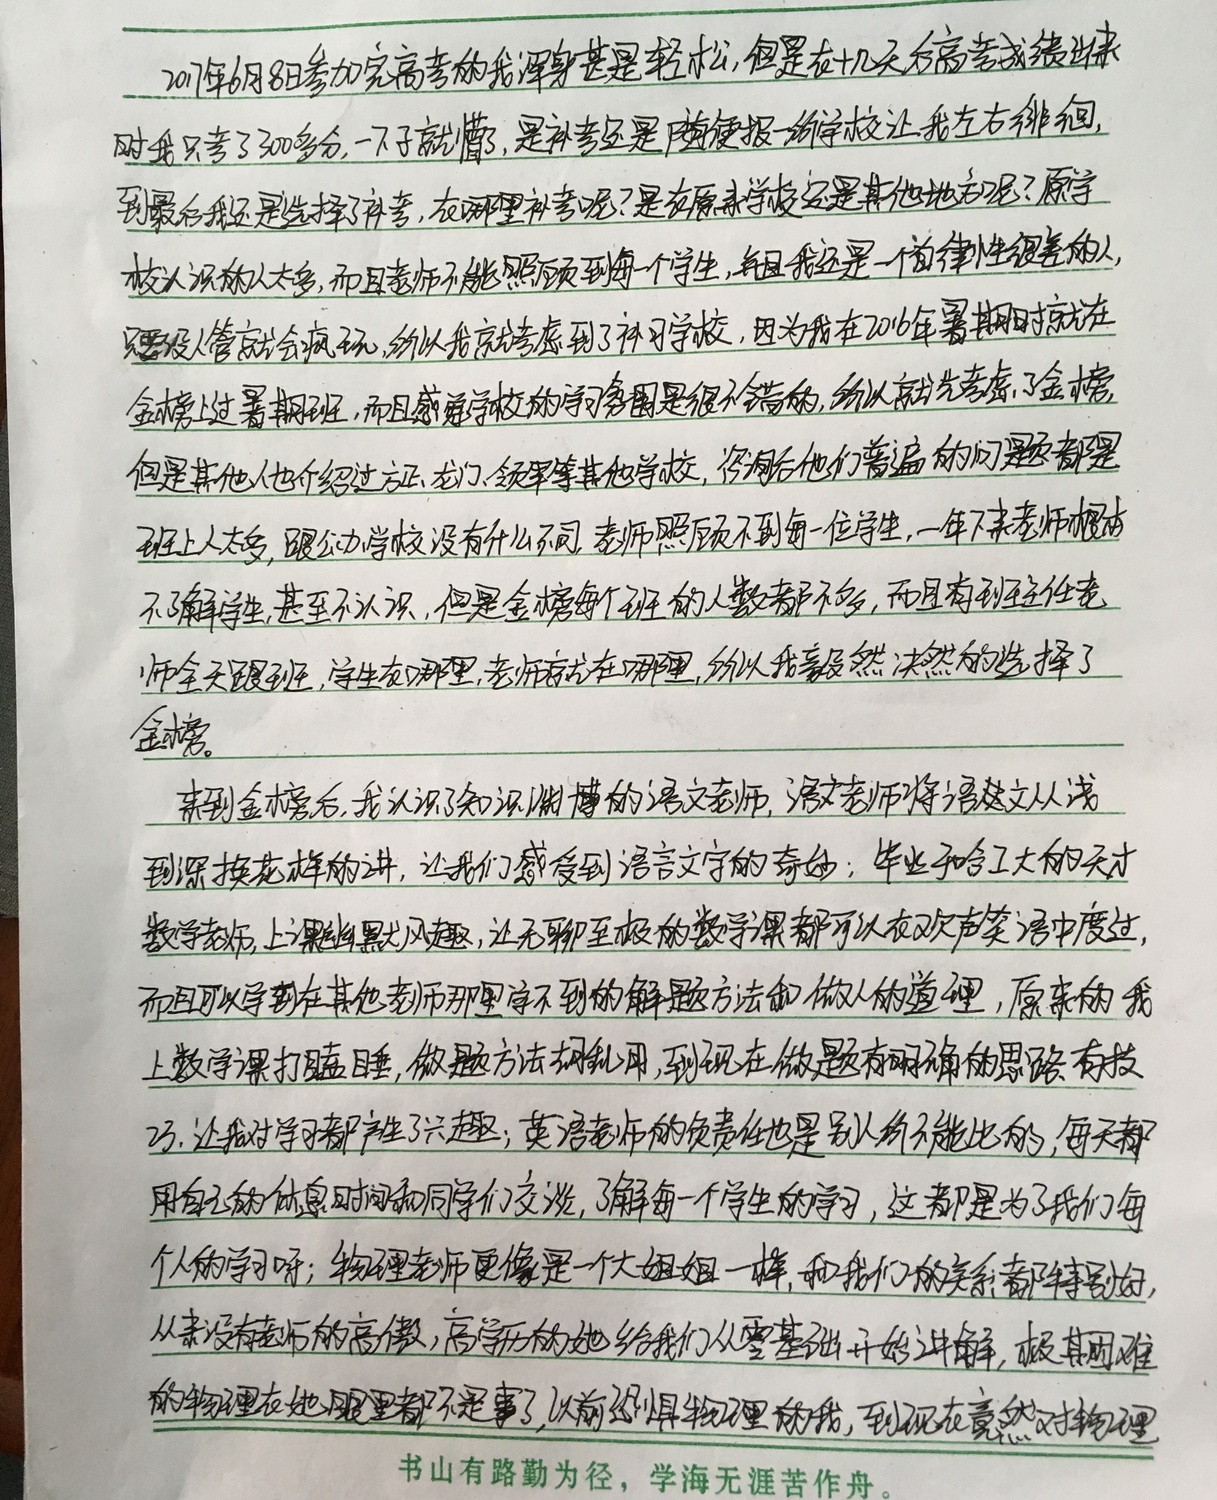 2017年6月8日参加完高考的我浑身甚是轻松,但是在十几天后高考成绩出来
时我只考了300多分,一下子就懵了,是补考还是随便报一所学校让我左右徘徊,
到最后我还是选择了补考,在哪里补考呢?是在原来学校还是其他地方呢?原学
校认识的人太多,而且老师不能照顾到每一个学生,并且我还是一个自律性很差的人,
只要没人管就会疯玩,所以我就考虑到了补习学校,因为我在2016年暑期时就在
金榜上过暑期班,而且感觉学校的学习氛围是很不错的,所以就先考虑了金榜,
但是其他人也介绍过方正、龙门、领军等其他学校,咨询后他们普遍的问题都是
班上人太多,跟公办学校没有什么不同,老师照顾不到每一位学生,一年下来老师根本
不了解学生,甚至不认识,但是金榜每个班的人数都不多,而且有班主任老
师全天跟班,学生在哪里,老师就在哪里,所以我毅然决然的选择了
金榜。
来到金榜后,我认识了知识渊博的语文老师,语文老师将语文从浅
到深换花样的讲,让我们感受到语言文字的奇妙;毕业于哈工大的天才
数学老师,上课幽默风趣,让无聊至极的数学课都可以在欢声笑语中度过,
而且可以学到在其他老师那里学不到的解题方法和做人的道理,原来的我
上数学课打瞌睡,做题方法胡乱用,到现在做题有明确的思路有技
巧,让我对学习都产生了兴趣;英语老师的负责任也是别人所不能比的,每天都
用自己的休息时间和同学们交谈,了解每一个学生的学习,这都是为了我们每
个人的学习呀;物理老师更像是一个大姐姐一样,和我们的关系都特别好,
从来没有老师的高傲,高学历的她给我们从零基础开始讲解,极其困难
的物理在她眼里都不是事了,以前恐惧物理的我,到现在竟然对物理
书山有路勤为径,学海无涯苦作舟。